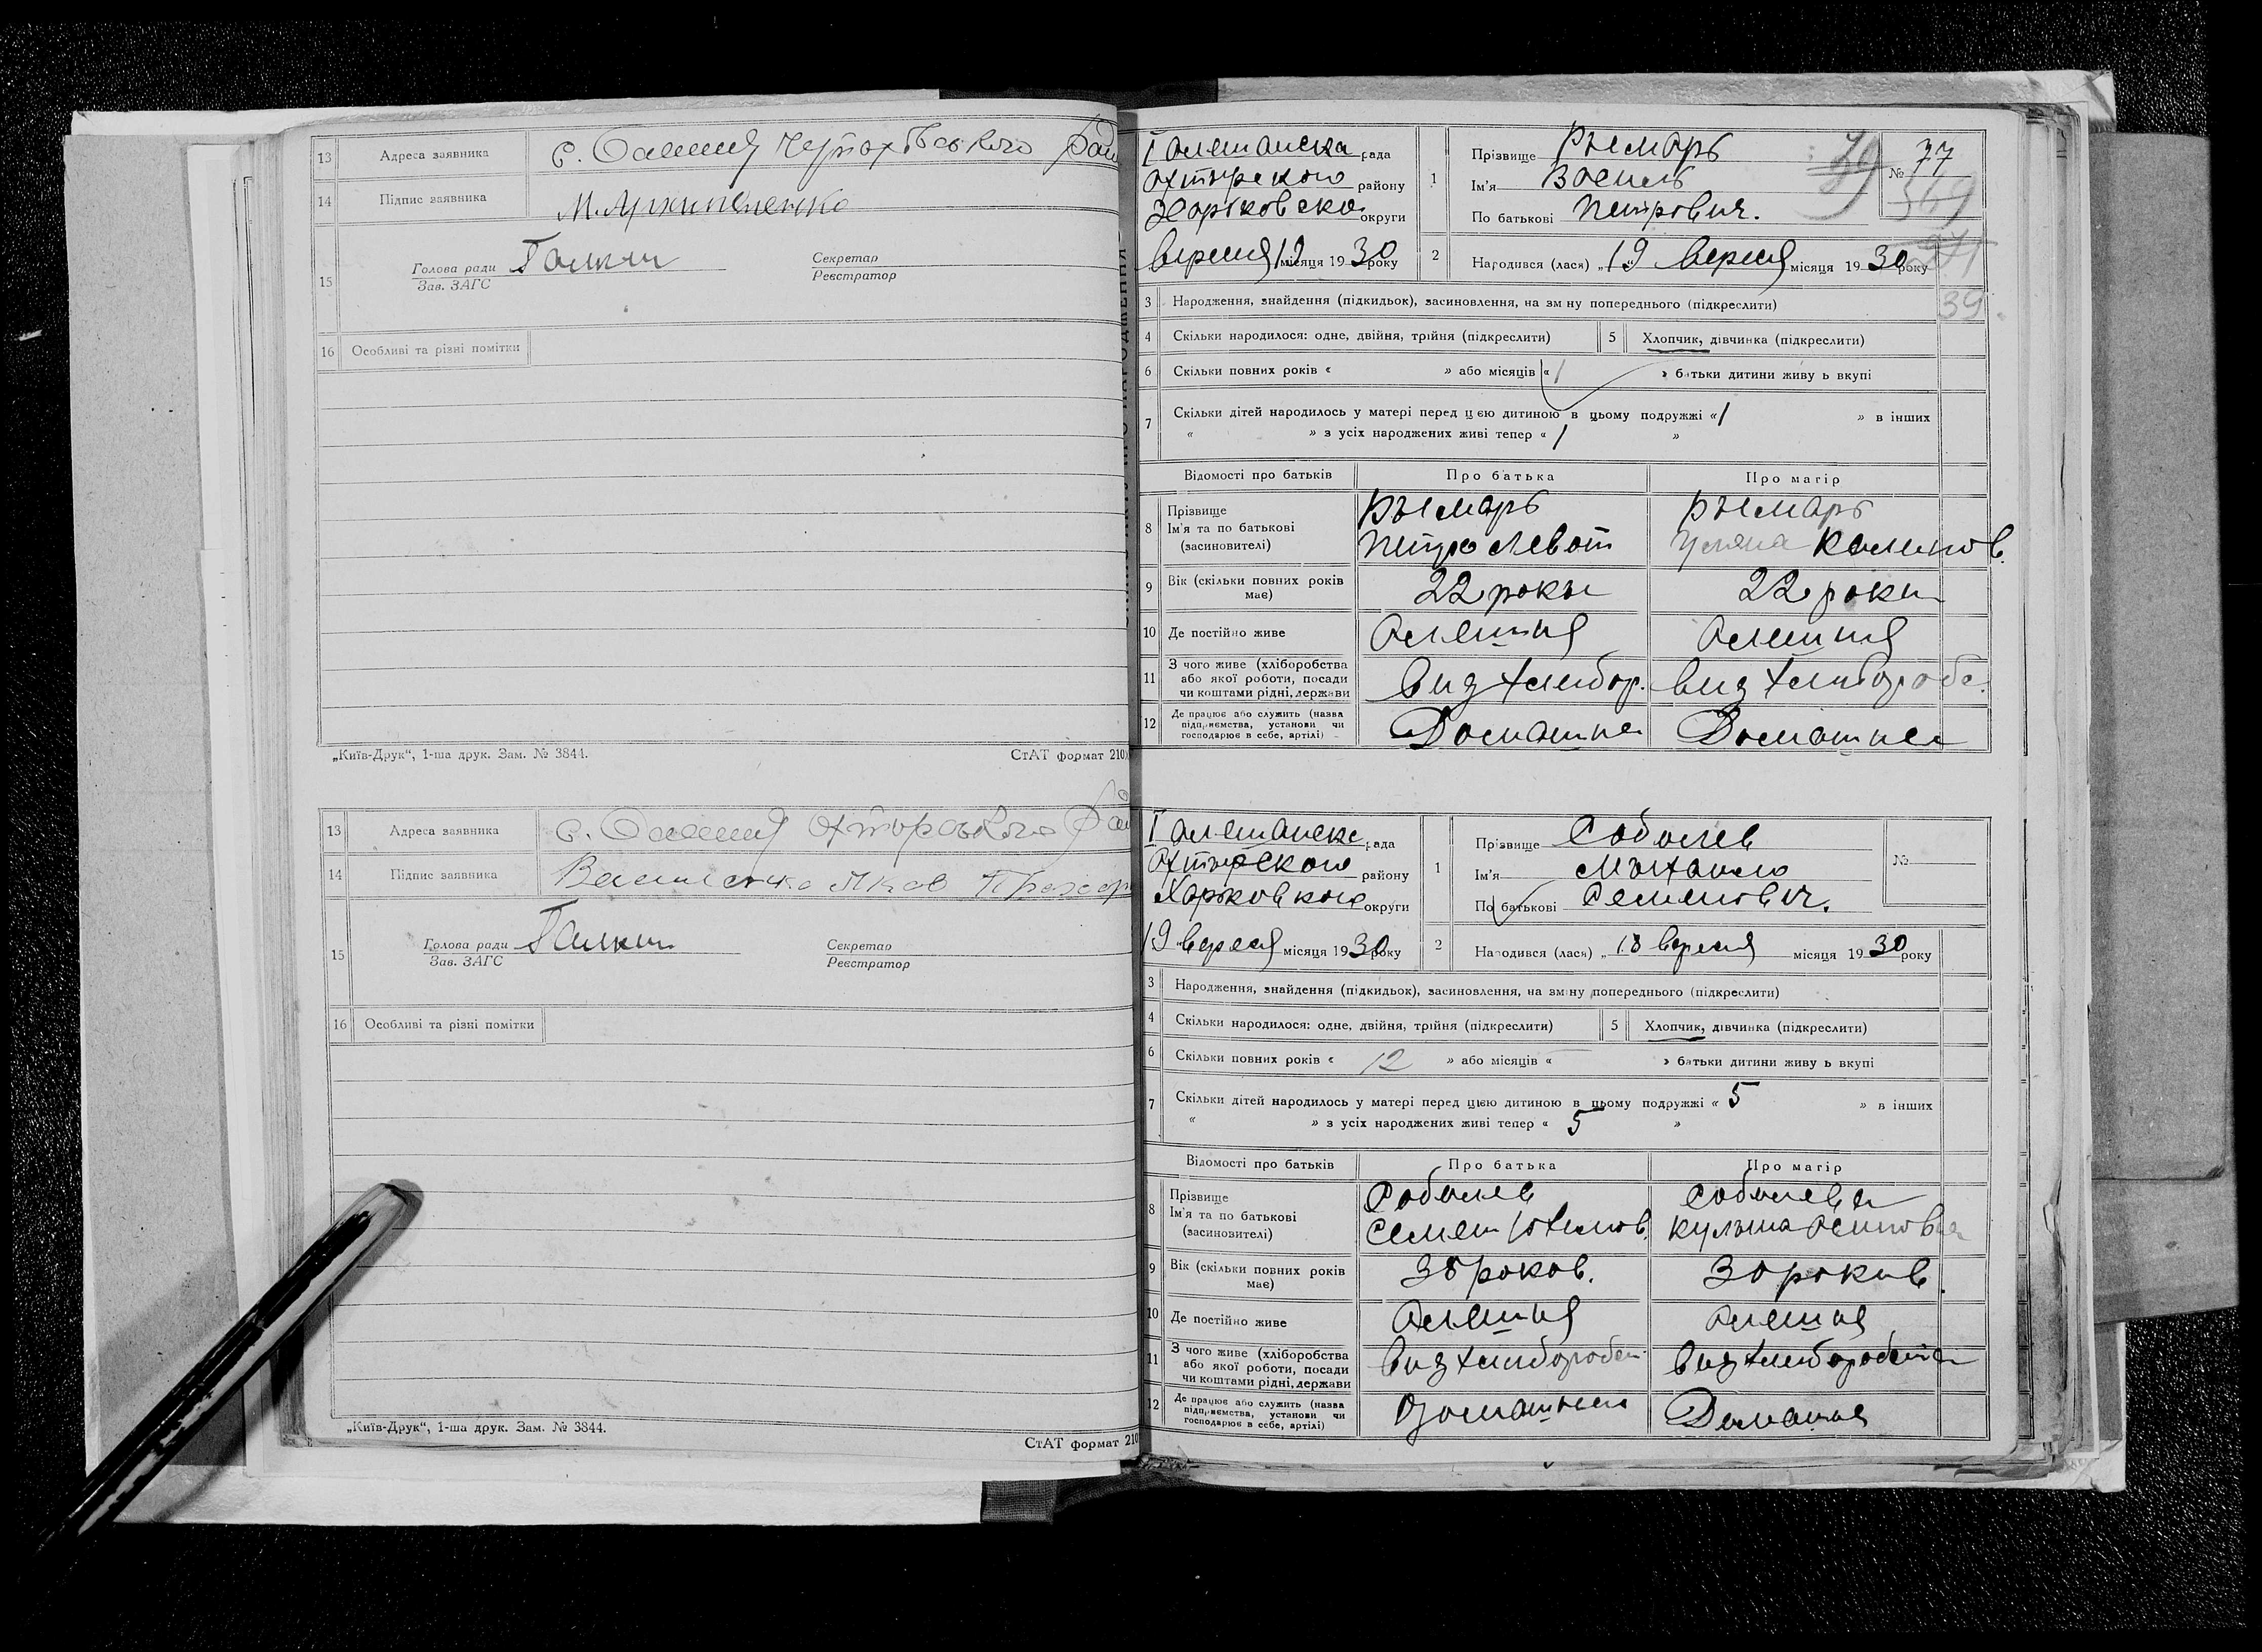 13 Адреса заявника с.
14 Підпис заявника М. Архипеленко
15 Голова ради Галкин Секретар
Зав. ЗАГС Реєстратор
16 Особливі та різні помітки
„Київ-Друк“, 1-ша друк. Зам. № 3844. СтАТ формат 210
13 Адреса заявника с.
14 Підпис заявника Яков
15 Голова ради Галкин Секретар
Зав. ЗАГС Реєстратор
16 Особливі та різні помітки
„Київ-Друк“, 1-ша друк. Зам. № 3844.
СтАТ формат 210
рада
района
округи
вересня 19 місяця 1930 року
1 Прізвище Рымарь № 77
Ім'я Василь
По батькові Петрович.
2 Народився (лася) „19 вересня місяця 1930 року
39
3 Народження, знайдення (підкидьок), засиновлення, на зміну попереднього (підкреслити)
4 Скільки народилося: одне, двійня, трійня (підкреслити) 5 Хлопчик, дівчинка (підкреслити)
6 Скільки повних років « » або місяців « 1 » батьки дитини живуть вкупі
7 Скільки дітей народилось у матері перед цією дитиною в цьому подружжі « 1 » в інших
« » з усіх народжених живі тепер « 1 »
Відомості про батьків Про батька Про матір
8 Прізвище Рымарь Рымарь
Ім'я та по батькові Петро Левот Уляна Калинов.
(засиновителі)
9 Вік (скільки повних років має) 22 рокы 22 роки
10 Де постійно живе Олешня Олешня
11 З чого живе (хліборобства або якої роботи, посади чи коштами рідні, держави вид хлибор. вид хлибороб.
12 Де працює або служить (назва підприємства, установи чи господарює в себе, артілі) Домашне Домашне
рада
району
Харьковкого округи
19 вересня місяця 1930 року
1 Прізвище Соболев №
Ім'я Мыхайло
По батькові Семенович.
2 Народився (лася) „18 вересня місяця 1930 року
3 Народження, знайдення (підкидьок), засиновлення, на зміну попереднього (підкреслити)
4 Скільки народилося: одне, двійня, трійня (підкреслити) 5 Хлопчик, дівчинка (підкреслити)
6 Скільки повних років « 12 » або місяців « » батьки дитини живуть вкупі
7 Скільки дітей народилось у матері перед цією дитиною в цьому подружжі « 5 » в інших
« » з усіх народжених живі тепер « 5 »
Відомості про батьків Про батька Про матір
8 Прізвище Соболев Соболева
Ім'я та по батькові Семен Юхимов.
(засиновителі)
9 Вік (скільки повних років має) 38 роков. 30 рокив.
10 Де постійно живе Олешня Олешня
11 З чого живе (хліборобства або якої роботи, посади чи коштами рідні, держави вид хлибороб вид хлиборобства
12 Де працює або служить (назва підприємства, установи чи господарює в себе, артілі) Домашне Домашня